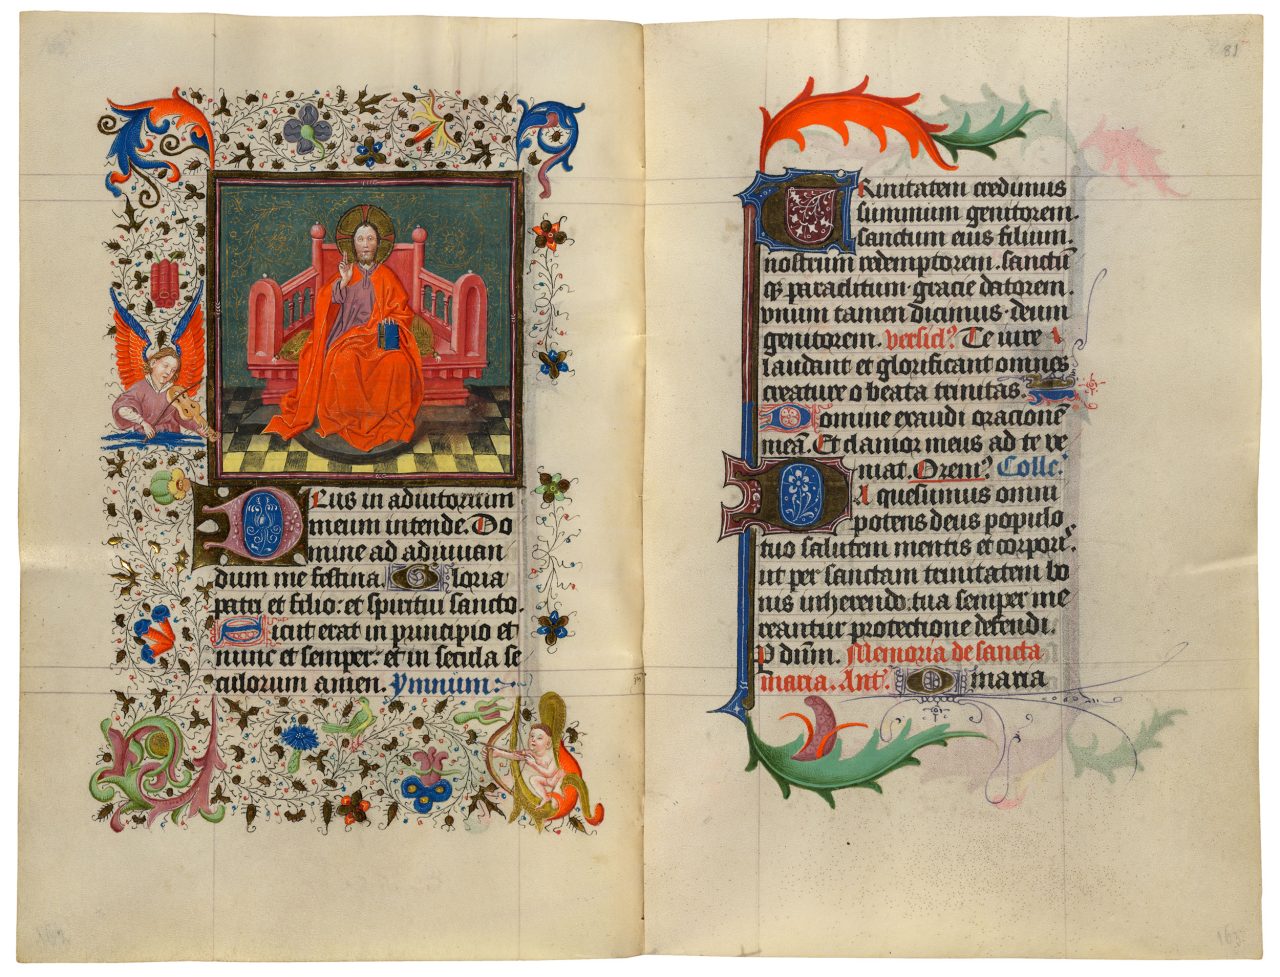 Deus in adiutorium
meum intende. Do
mine ad adiuuan
dum me festina. Gloria
patri et filio: et spiritui sancto.
Sicut erat in principio et
nunc et semper: et in secula se
culorum amen. ymnum:
81
Trinitatem credimus
summum genitorem.
sanctum eius filium.
nostrum redemptorem. sanctū
qꝫ paraclitum gracie datorem.
vnum tamen dicimus deum
genitorem. versiclꝰ. Te iure
laudant et glorificant omnes
creature o beata trinitas.
Domine exaudi oracionē
meā. Et clamor meus ad te ve
niat. Oremꝰ Colle.
Da quesumus omni
potens deus populo
tuo salutem mentis et corpor̄.
ut per sanctam trinitatem bo
nis inherendo: tua semper me
reantur protectione defendi.
P dūm. Memoria de sancta
maria. Ant. O maria
163